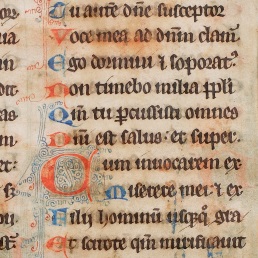 Tu autē dn̄e susceptor
Voce mea ad dnm̄ clam̄
Ego dormiui & soporat᷒
Non timebo milia ppl̄i
Qm̄ tu percussisti omnes
Dn̄i est salus et super
Cum inuocarem ex
Miserere mei & ex
Filij hominū usq̄q̄ gra
Et scitote qm̄ mirificauit